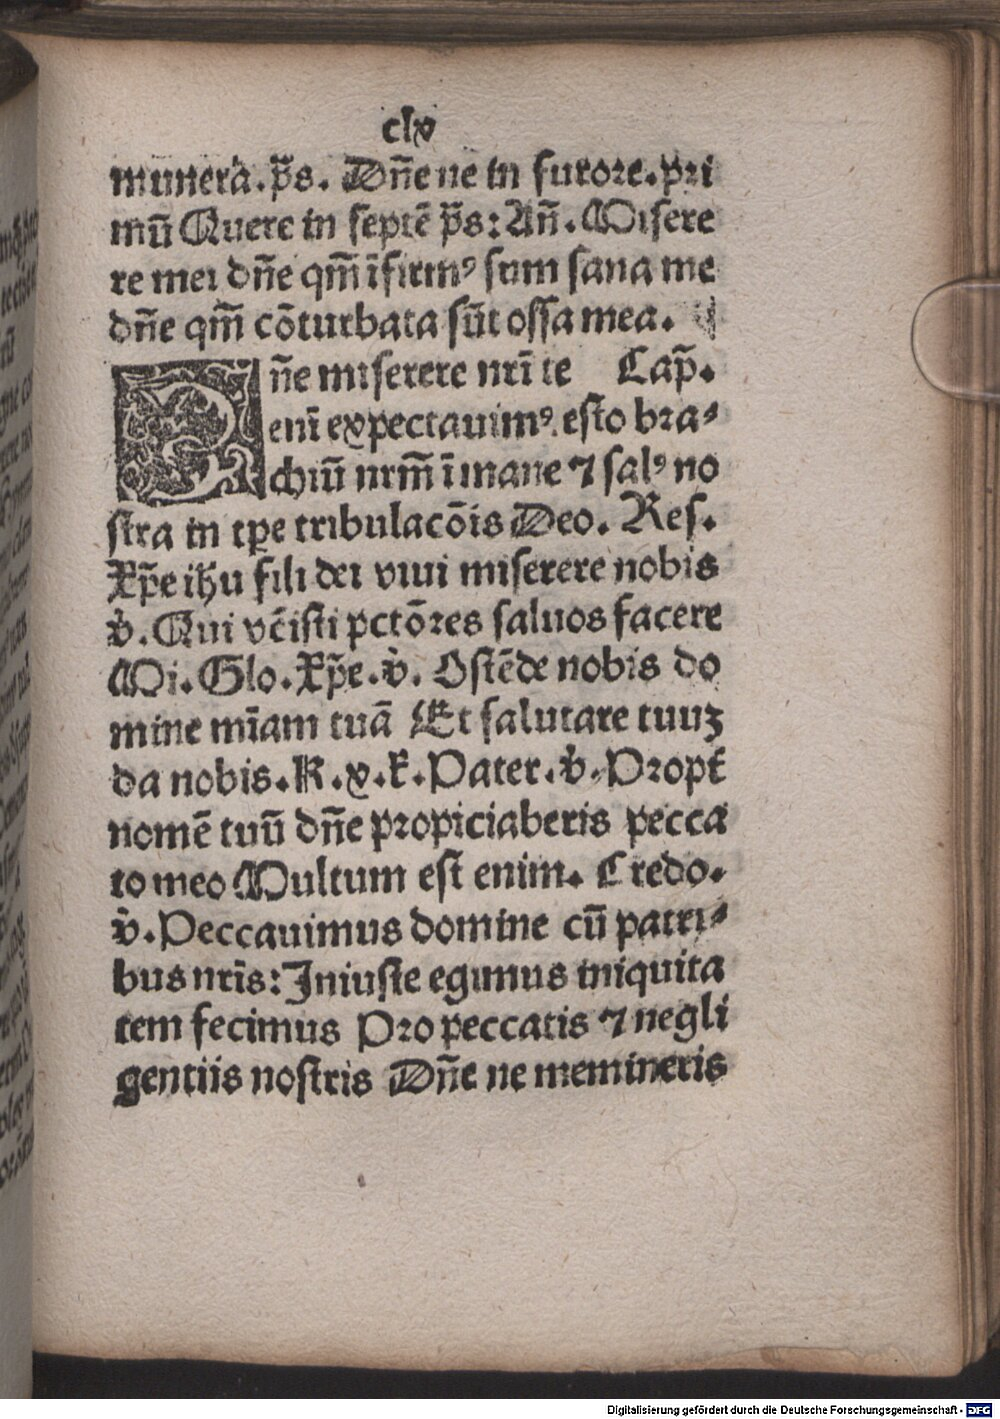 clv
munera. p̄s. Dn̄e ne in furore. pri
mū Quere in septē p̄s: An̄. Misere
re mei dn̄e qm̄ īfirmꝰ sum sana me
dn̄e qm̄ cōturbata sūt ossa mea.
Dn̄e miserere nr̄i te Cap̄.
enī expectauimꝰ. esto bra⸗
chiū nrm̄ ī mane ⁊ salꝰ no
stra in tp̄e tribulacōis Deo. Res.
Xp̄e ihu fili dei viui miserere nobis
v̇. Qui vēisti pctōres saluos facere
Mi. Glo. Xp̄e. v̇. Ostēde nobis do
mine mīam tuā Et salutare tuuꝫ
da nobis. K. x. k. Pater. v̇. Propt̄
nomē tuū dn̄e propiciaberis pecca
to meo Multum est enim. Credo.
v̇. Peccauimus domine cū patri⸗
bus nrīs: Iniuste egimus iniquita
tem fecimus Pro peccatis ⁊ negli
gentiis nostris Dn̄e ne memineris
Digitalisierung gefördert durch die Deutsche Forschungsgemeinschaft - DFG